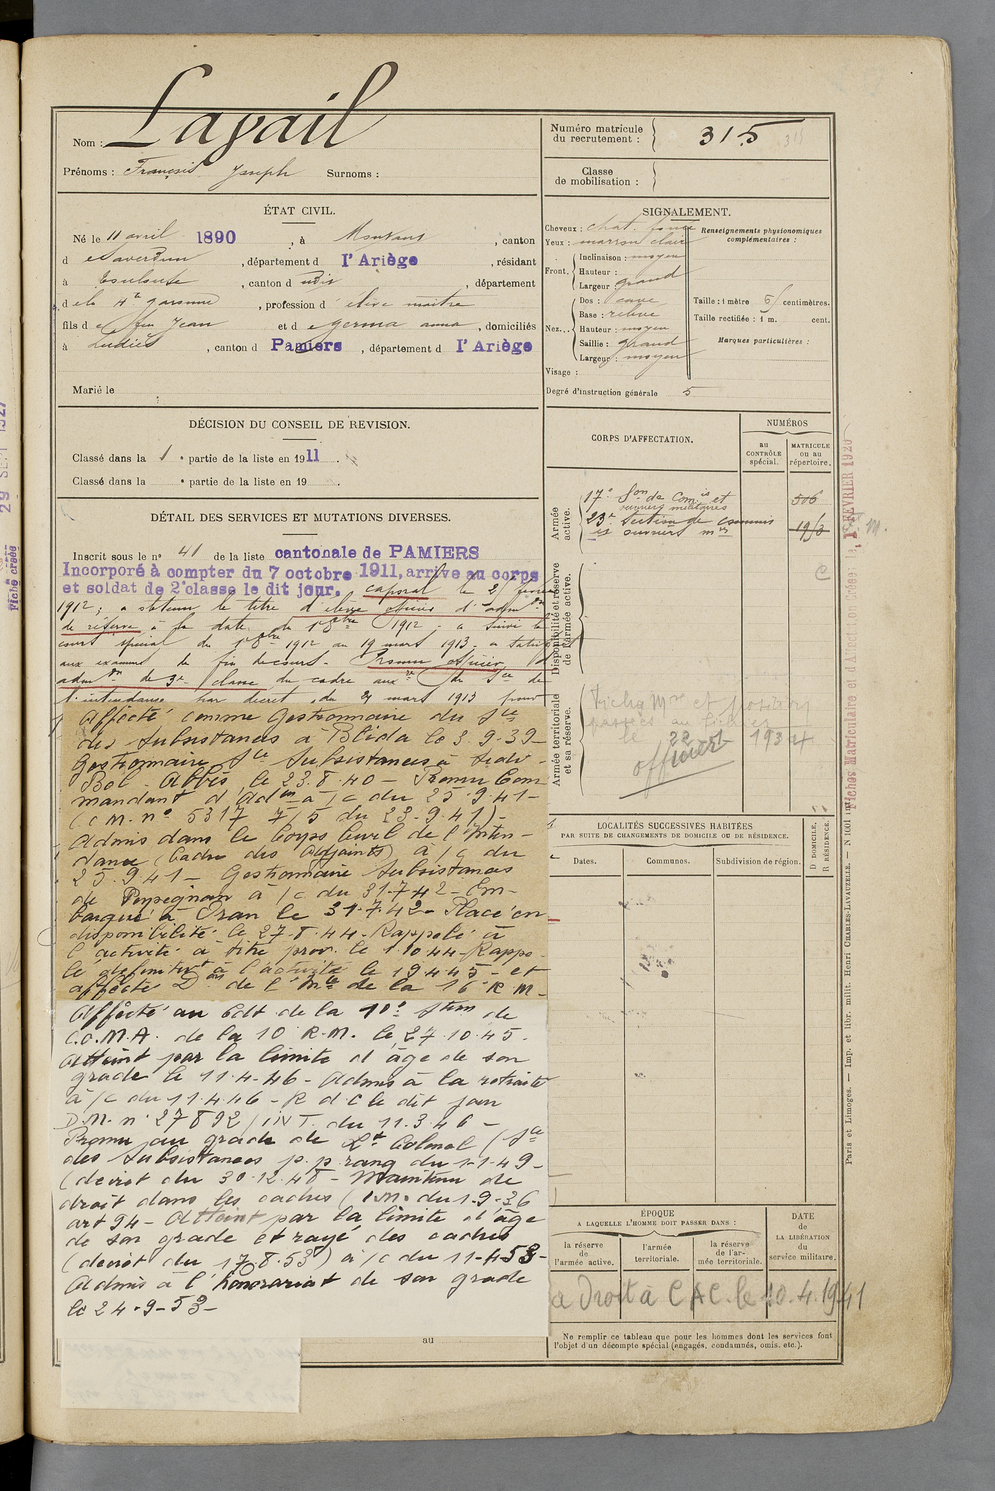 Nom : Lapail
Prénoms : François Joseph Surnoms :
Numéro matricule du recrutement : 315
Classe de mobilisation :
ÉTAT CIVIL.
Né le 11 avril 1890, à Montaut, canton
d e Saverdun, département d l'Ariège, résidant
à Toulouse, canton d udit, département
d e la Hte garonne, profession d' élève maître
fils d e feu Jean et d e germa anna, domiciliés
à Ludiès, canton d Pamiers, département d l'Ariège
Marié le
SIGNALEMENT.
Cheveux : chat. foncé
Yeux : marron clair
Front. Inclinaison : moyen
Hauteur :
Largeur grand
Nez... Dos : cave
Base : relevé
Hauteur : moyen
Saillie : grand
Largeur : moyen
Visage :
Degré d'instruction générale 5
Renseignements physionomiques complémentaires :
Taille : 1 mètre centimètres.
Taille rectifiée : 1 m. cent.
Marques particulières :
DÉCISION DU CONSEIL DE REVISION.
Classé dans la 1 e partie de la liste en 1911.
Classé dans la e partie de la liste en 19 .
DÉTAIL DES SERVICES ET MUTATIONS DIVERSES.
Inscrit sous le n° 41 de la liste cantonale de PAMIERS
Incorporé à compter du 7 octobre 1911, arrive au corps
et soldat de 2e classe le dit jour. caporal le
1912; a obtenu le titre d'élève officier d'admon
de réserve à la date du 1912 - a suivi le
cours spécial du 1912 au 19 mars 1913 - a satisfait
aux examens de fin de cours. Promu officier d'
admon de 3e classe du cadre auxre du Sce de
l'intendance par décret du mars 1913 pour
Affecté comme gestionnaire du Sce
des Subsistances à Blida le 3.9.39-
Gestionnaire Sce Subsistances à Sidi-
Bel-Abbès le 23.8.40 - Promu Com
mandant d'Adon à /c du 25.9.41-
(C.M. n° 5317 7/5 du 23.9.41)-
Admis dans le Corps Civil de l'Inten-
dance (Cadre des Adjoints) à /c du
25.9.41 - Gestionnaire Subsistances
de Perpignan à /c du 31.7.42 - Em-
barqué à Oran le 31.7.42 - Placé en
disponibilité le 27.8.44 - Rappelé à
l'activité à titre prov. le 1.10.44 - Rappe-
lé définitivt à l'activité le 19.4.45 - et
affecté Don de l'Intce de la 16e R.M.-
Affecté au Cdt de la 10e Son de
C.O.M.A. de la 10 R.M. le 27.10.45.
Atteint par la limite d'âge de son
grade le 11.4.46 - Admis à la retraite
à /c du 11.4.46 - R d C le dit jour
D.M. n° 27892/INT. du 11.3.46 -
Promu au grade de Lt Colonel (Sce
des Subsistances p.p. rang du 1-1-49-
(décret du 30.12.48 - Maintenu de
droit dans les cadres (I.M. du 1-9-36
art 94 - Atteint par la limite d'âge
de son grade et rayé des cadres
(décret du 17.8.53) à /c du 11-4-53-
Admis à l'honorariat de son grade
le 24-9-53-
au
CORPS D'AFFECTATION.
NUMÉROS
au CONTRÔLE spécial.
MATRICULE ou au répertoire.
Armée active.
17e Son de Comis et ouvriers militaires 506
23e Section de commis et ouvriers mres
Disponibilité et réserve de l'armée active.
Armée territoriale et sa réserve.
Fiches Mle et
le 22 1934
officier
LOCALITÉS SUCCESSIVES HABITÉES
PAR SUITE DE CHANGEMENTS DE DOMICILE OU DE RÉSIDENCE.
D DOMICILE, R RÉSIDENCE.
Dates. Communes. Subdivision de région.
ÉPOQUE
A LAQUELLE L'HOMME DOIT PASSER DANS :
la réserve de l'armée active.
l'armée territoriale.
la réserve de l'armée territoriale.
DATE de LA LIBÉRATION du service militaire.
a Droit à CAC. le 10.4.1941
Ne remplir ce tableau que pour les hommes dont les services font
l'objet d'un décompte spécial (engagés, condamnés, omis, etc.).
Paris et Limoges. — Imp. et libr. milit. Henri CHARLES-LAVAUZELLE. — N° 1001
29 SEPT 1927
Fiche créée